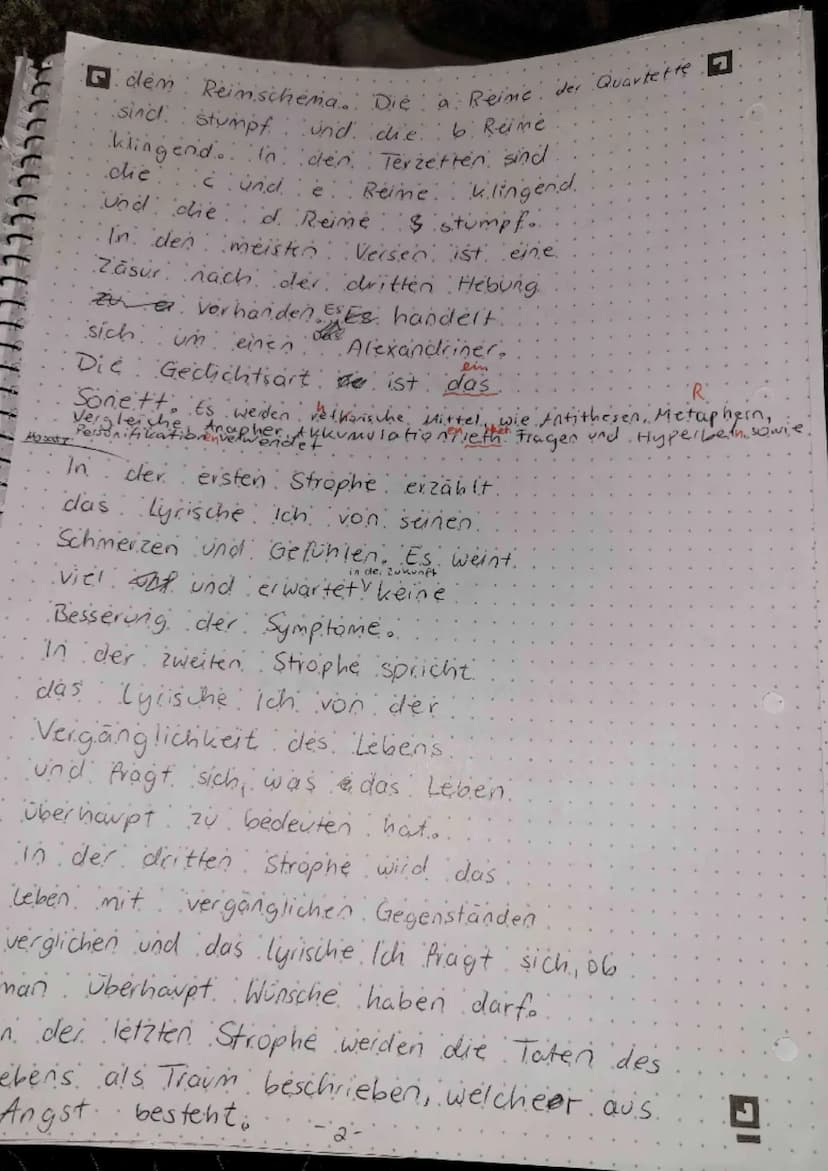 dem Reimschema. Die a Reime der Quartette
sind stumpf und die b Reime
klingend. In den Terzetten sind
die c und e Reime klingend
und die d Reime stumpf.
In den meisten Versen ist eine
Zäsur nach der dritten Hebung
vorhanden. Es handelt
sich um einen Alexandriner.
ein
Die Gedichtsart ist das
R
Sonett. Es werden rethorische Mittel, wie Antithesen, Metaphern,
Vergleiche, Anapher, Akkumulation, reth. Fragen und Hyperbeln sowie
Personifikationen verwendet
In der ersten Strophe erzählt
das Lyrische Ich von seinen
Schmerzen und Gefühlen. Es weint
in der Zukunft
viel und erwartet keine
Besserung der Symptome.
In der zweiten Strophe spricht
das Lyrische Ich von der
Vergänglichkeit des Lebens
und fragt sich, was das Leben
überhaupt zu bedeuten hat.
In der dritten Strophe wird das
Leben mit vergänglichen Gegenständen
verglichen und das lyrische Ich fragt sich, ob
man überhaupt Wünsche haben darf.
n der letzten Strophe werden die Taten des
ebens als Traum beschrieben, welcher aus
Angst besteht.
-2-